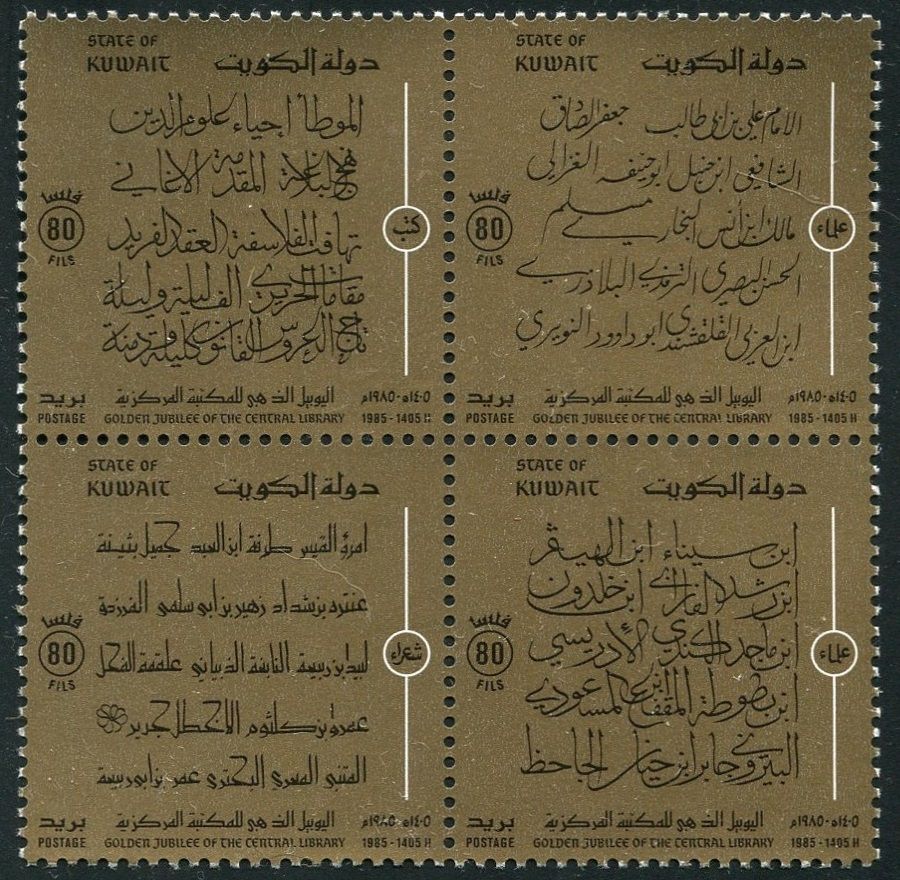 STATE OF
KUWAIT دولة الكويت
الموطأ إحياء علوم الدين
نهج البلاغة المقدمة الاغاني
تهافت الفلاسفة العقد الفريد
مقامات الحريري الف ليلة وليلة
تاج العروس القانون كليلة ودمنة
كتب
فلسا
80
FILS
بريد اليوبيل الذهبي للمكتبة المركزية ١٤٠٥ه-١٩٨٥م
POSTAGE GOLDEN JUBILEE OF THE CENTRAL LIBRARY 1985 - 1405 H
STATE OF
KUWAIT دولة الكويت
الامام علي بن ابي طالب جعفر الصادق
الشافعي ابن حنبل ابو حنيفه الغزالي
مالك ابن أنس البخاري مسلم
الحسن البصري الترمذي البلاذري
ابن العربي القلقشندي ابو داوود النويري
علماء
فلسا
80
FILS
بريد اليوبيل الذهبي للمكتبة المركزية ١٤٠٥ه-١٩٨٥م
POSTAGE GOLDEN JUBILEE OF THE CENTRAL LIBRARY 1985 - 1405 H
STATE OF
KUWAIT دولة الكويت
امرؤ القيس طرفة ابن العبد جميل بثينة
عنتره بن شداد زهير بن ابي سلمى الفرزدق
لبيد بن ربيعة النابغة الذبياني علقمة الفحل
عمرو بن كلثوم الاخطل جرير
المتنبي المعري البحتري عمر بن ابي ربيعة
شعراء
فلسا
80
FILS
بريد اليوبيل الذهبي للمكتبة المركزية ١٤٠٥ه-١٩٨٥م
POSTAGE GOLDEN JUBILEE OF THE CENTRAL LIBRARY 1985 - 1405 H
STATE OF
KUWAIT دولة الكويت
ابن سيناء ابن الهيثم
ابن رشد الفارابي ابن خلدون
ابن ماجد الكندي الإدريسي
ابن بطوطة ابن المقفع المسعودي
البيروني جابر ابن حيان الجاحظ
علماء
فلسا
80
FILS
بريد اليوبيل الذهبي للمكتبة المركزية ١٤٠٥ه-١٩٨٥م
POSTAGE GOLDEN JUBILEE OF THE CENTRAL LIBRARY 1985 - 1405 H